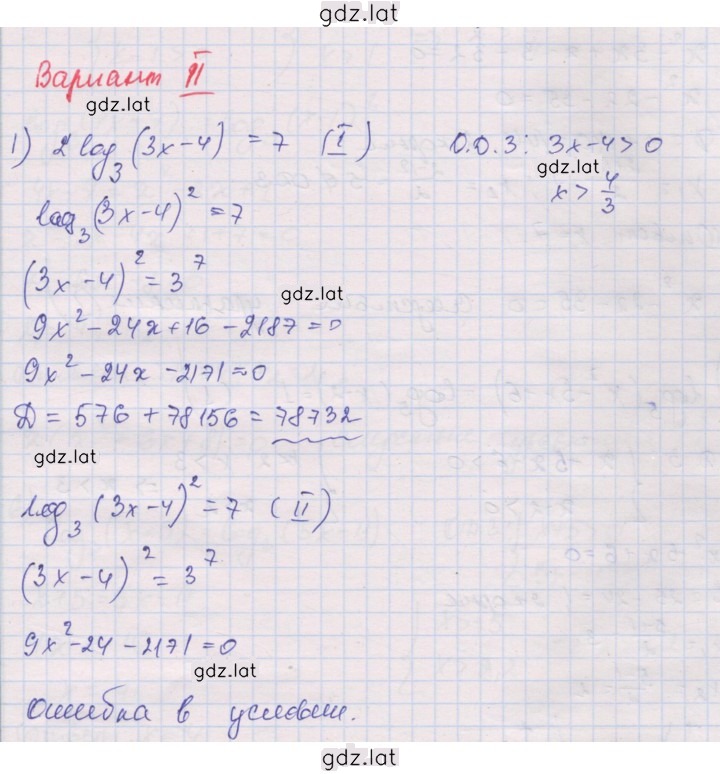 gdz.lat
Вариант II
gdz.lat
1) 2log₃(3x-4) = 7 (I) О.О.З: 3x-4>0
gdz.lat
x > 4/3
log₃(3x-4)² = 7
(3x-4)² = 3⁷
gdz.lat
9x²-24x+16-2187=0
9x²-24x-2171=0
D = 576 + 78156 = 78732
gdz.lat
log₃(3x-4)² = 7 (II)
(3x-4)² = 3⁷
9x²-24-2171=0
gdz.lat
Ошибка в условии.
gdz.lat